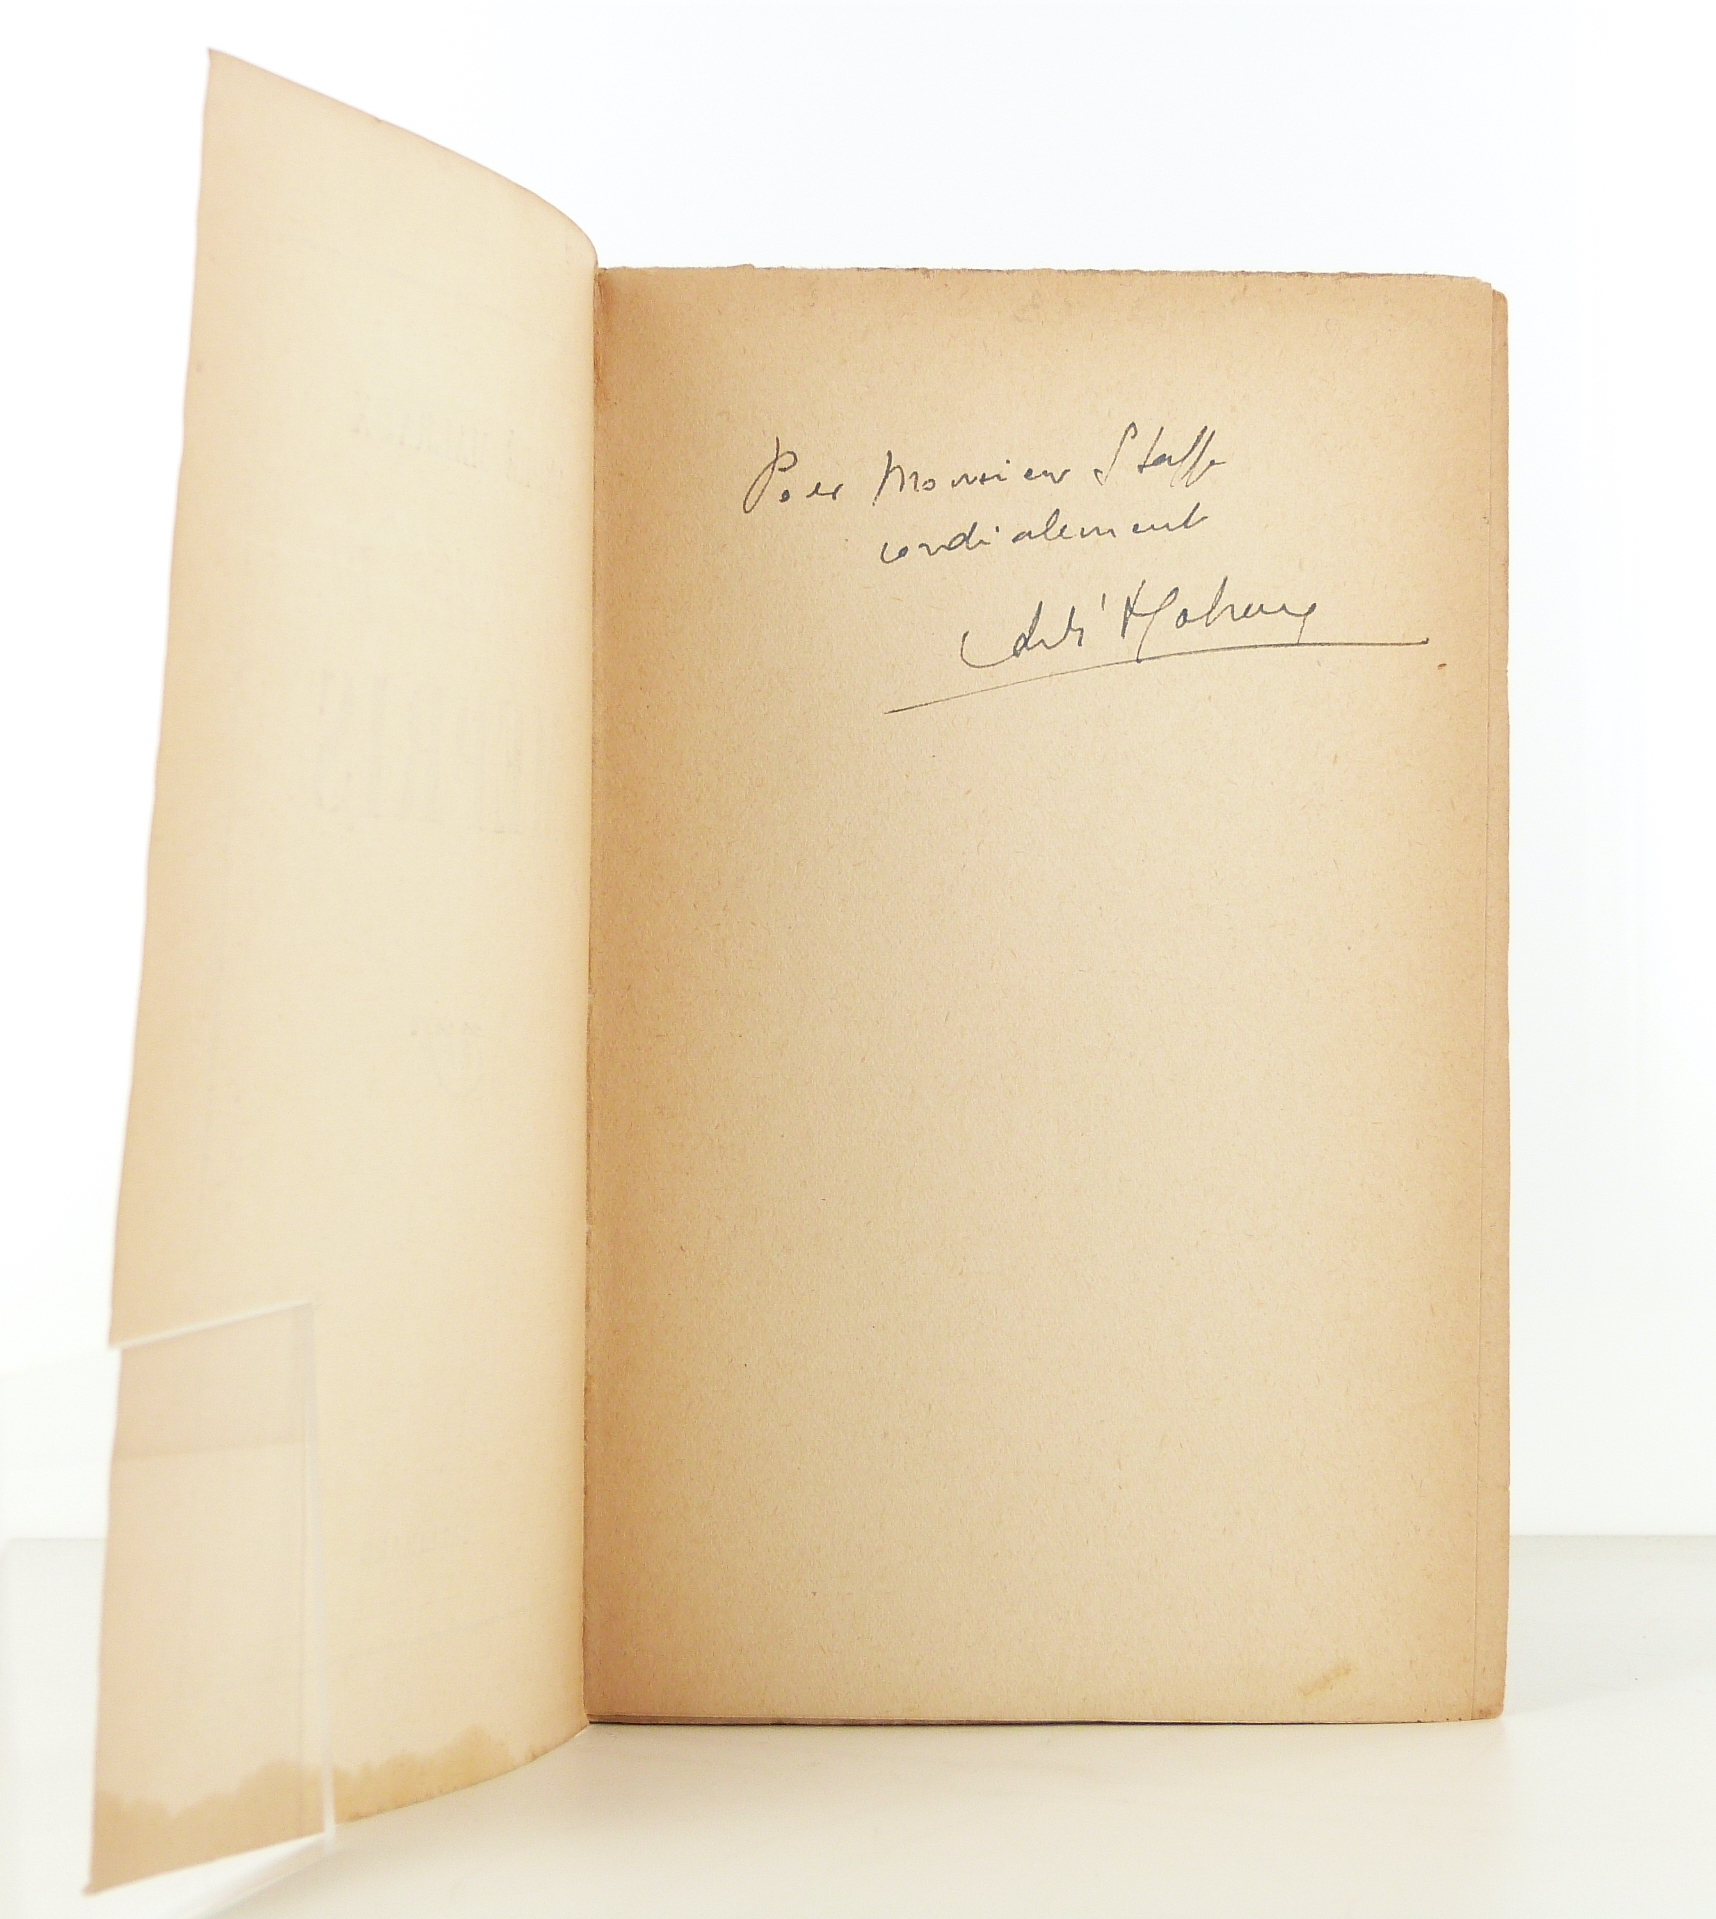 Pour Monsieur Staffe
cordialement
André Malraux